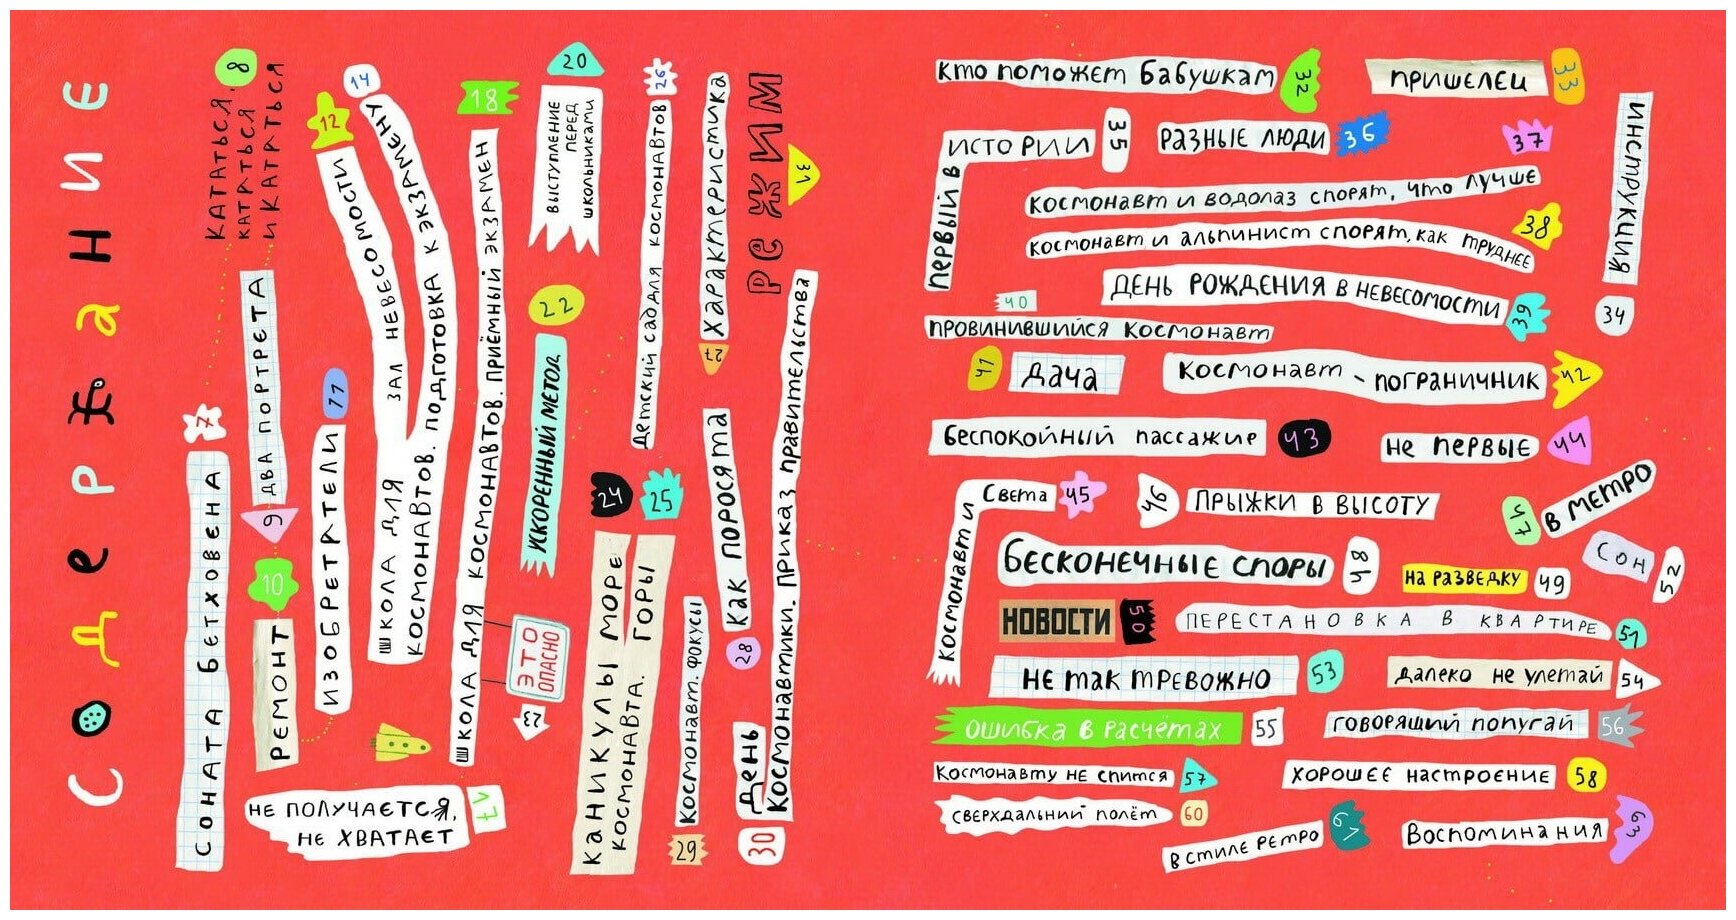 Содержание
7
Соната Бетховена
8
Кататься,
кататься
и кататься
9
Два портрета
10
Ремонт
11
Изобретатели
12
Школа для
космонавтов. Зал невесомости
14
Школа для
космонавтов. Подготовка к экзамену
17
Не получается,
не хватает
18
Школа для космонавтов. Приёмный экзамен
20
Выступление
перед
школьниками
22
Ускоренный метод
23
Это
опасно
24
Каникулы
космонавта. Море
25
Горы
26
Детский сад для космонавтов
27
Характеристика
28
Как поросята
29
Космонавт. Фокусы
30
День
Космонавтики. Приказ правительства
31
Режим
Кто поможет бабушкам
32
Пришелец
33
Инструкция
34
Первый в
истории
35
Разные люди
36
37
Космонавт и водолаз спорят, что лучше
Космонавт и альпинист спорят, как труднее
38
День рождения в невесомости
39
40
Провинившийся космонавт
41
Дача
Космонавт - пограничник
42
Беспокойный пассажир
43
Не первые
44
Космонавт и
Света
45
46
Прыжки в высоту
47
В метро
Бесконечные споры
48
На разведку
49
Сон
52
Новости
50
Перестановка в квартире
51
Не так тревожно
53
Далеко не улетай
54
Ошибка в расчётах
55
Говорящий попугай
56
Космонавту не спится
57
Хорошее настроение
58
Сверхдальний полёт
60
В стиле ретро
61
Воспоминания
63